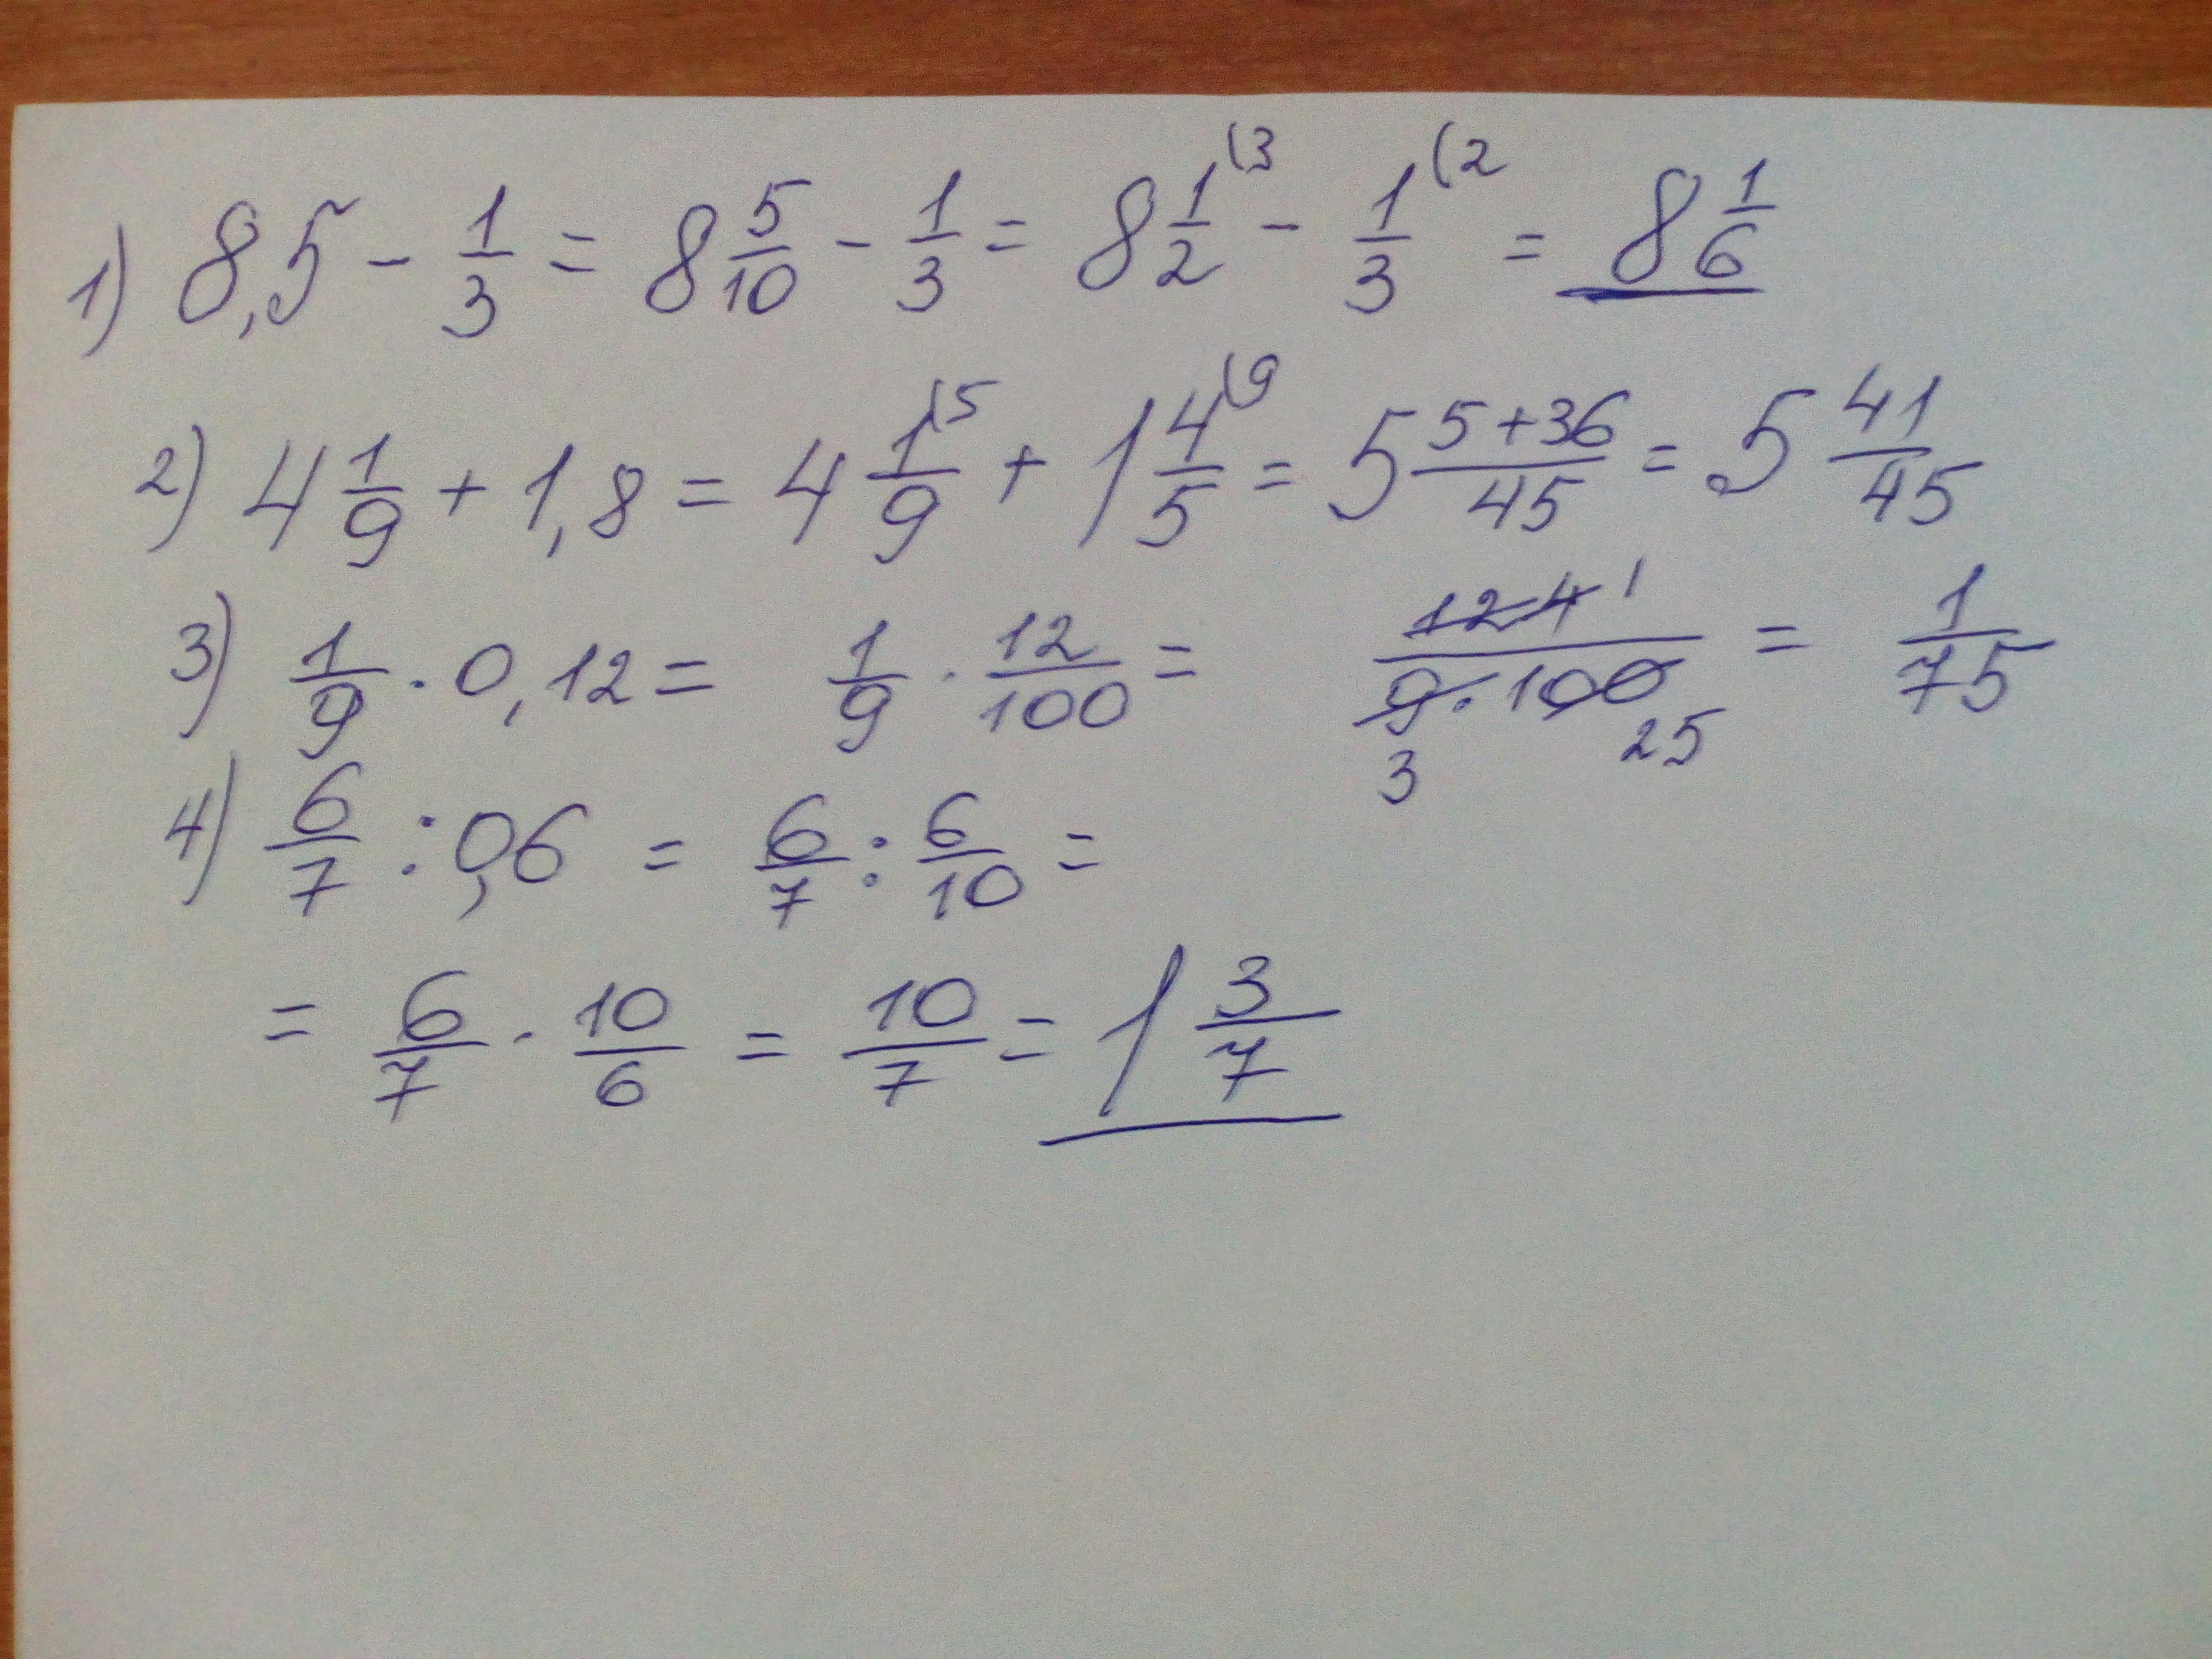 1) 8,5 - 1/3 = 8 5/10 - 1/3 = 8 1/2 (3 - 1/3 (2 = 8 1/6
2) 4 1/9 + 1,8 = 4 1/9 (5 + 1 4/5 (9 = 5 5+36/45 = 5 41/45
3) 1/9 · 0,12 = 1/9 · 12/100 = 12 4 1/9 · 100 3 25 = 1/75
4) 6/7 : 0,6 = 6/7 : 6/10 =
= 6/7 · 10/6 = 10/7 = 1 3/7